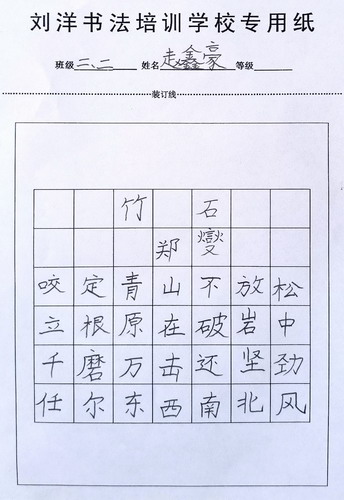 刘洋书法培训学校专用纸
班级 二、二 姓名 赵鑫豪 等级
装订线
竹 石
郑 燮
咬定青山不放松
立根原在破岩中
千磨万击还坚劲
任尔东西南北风